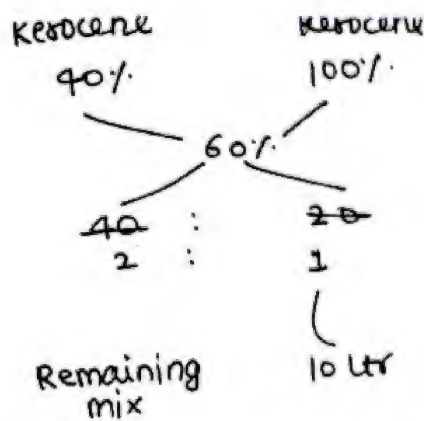 Kerocene Kerocene
40% 100%
60%
40 : 20
2 : 1
Remaining 10 Ltr
mix